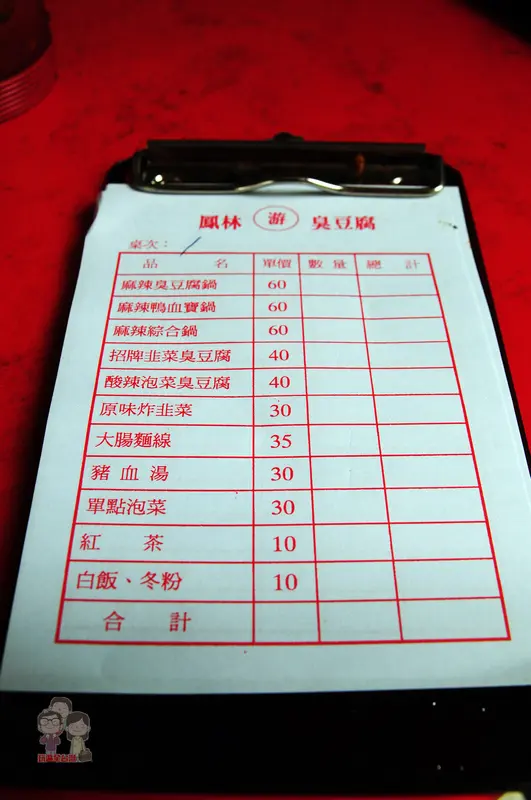 鳳林 游 臭豆腐
桌次：
品 名 單價 數量 總 計
麻辣臭豆腐鍋 60
麻辣鴨血寶鍋 60
麻辣綜合鍋 60
招牌韭菜臭豆腐 40
酸辣泡菜臭豆腐 40
原味炸韭菜 30
大腸麵線 35
豬血湯 30
單點泡菜 30
紅 茶 10
白飯、冬粉 10
合 計